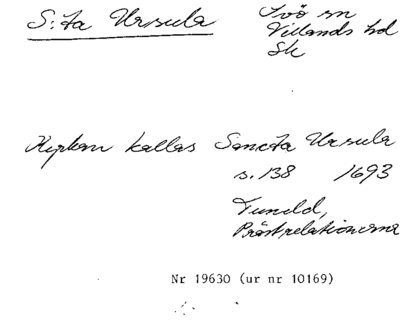 S:ta Ursula
Ivö sn
Villands hd
Sk
Kyrkan kallas Sancta Ursula
s. 138 1693
Tuneld,
Prästrelationerna
Nr 19630 (ur nr 10169)